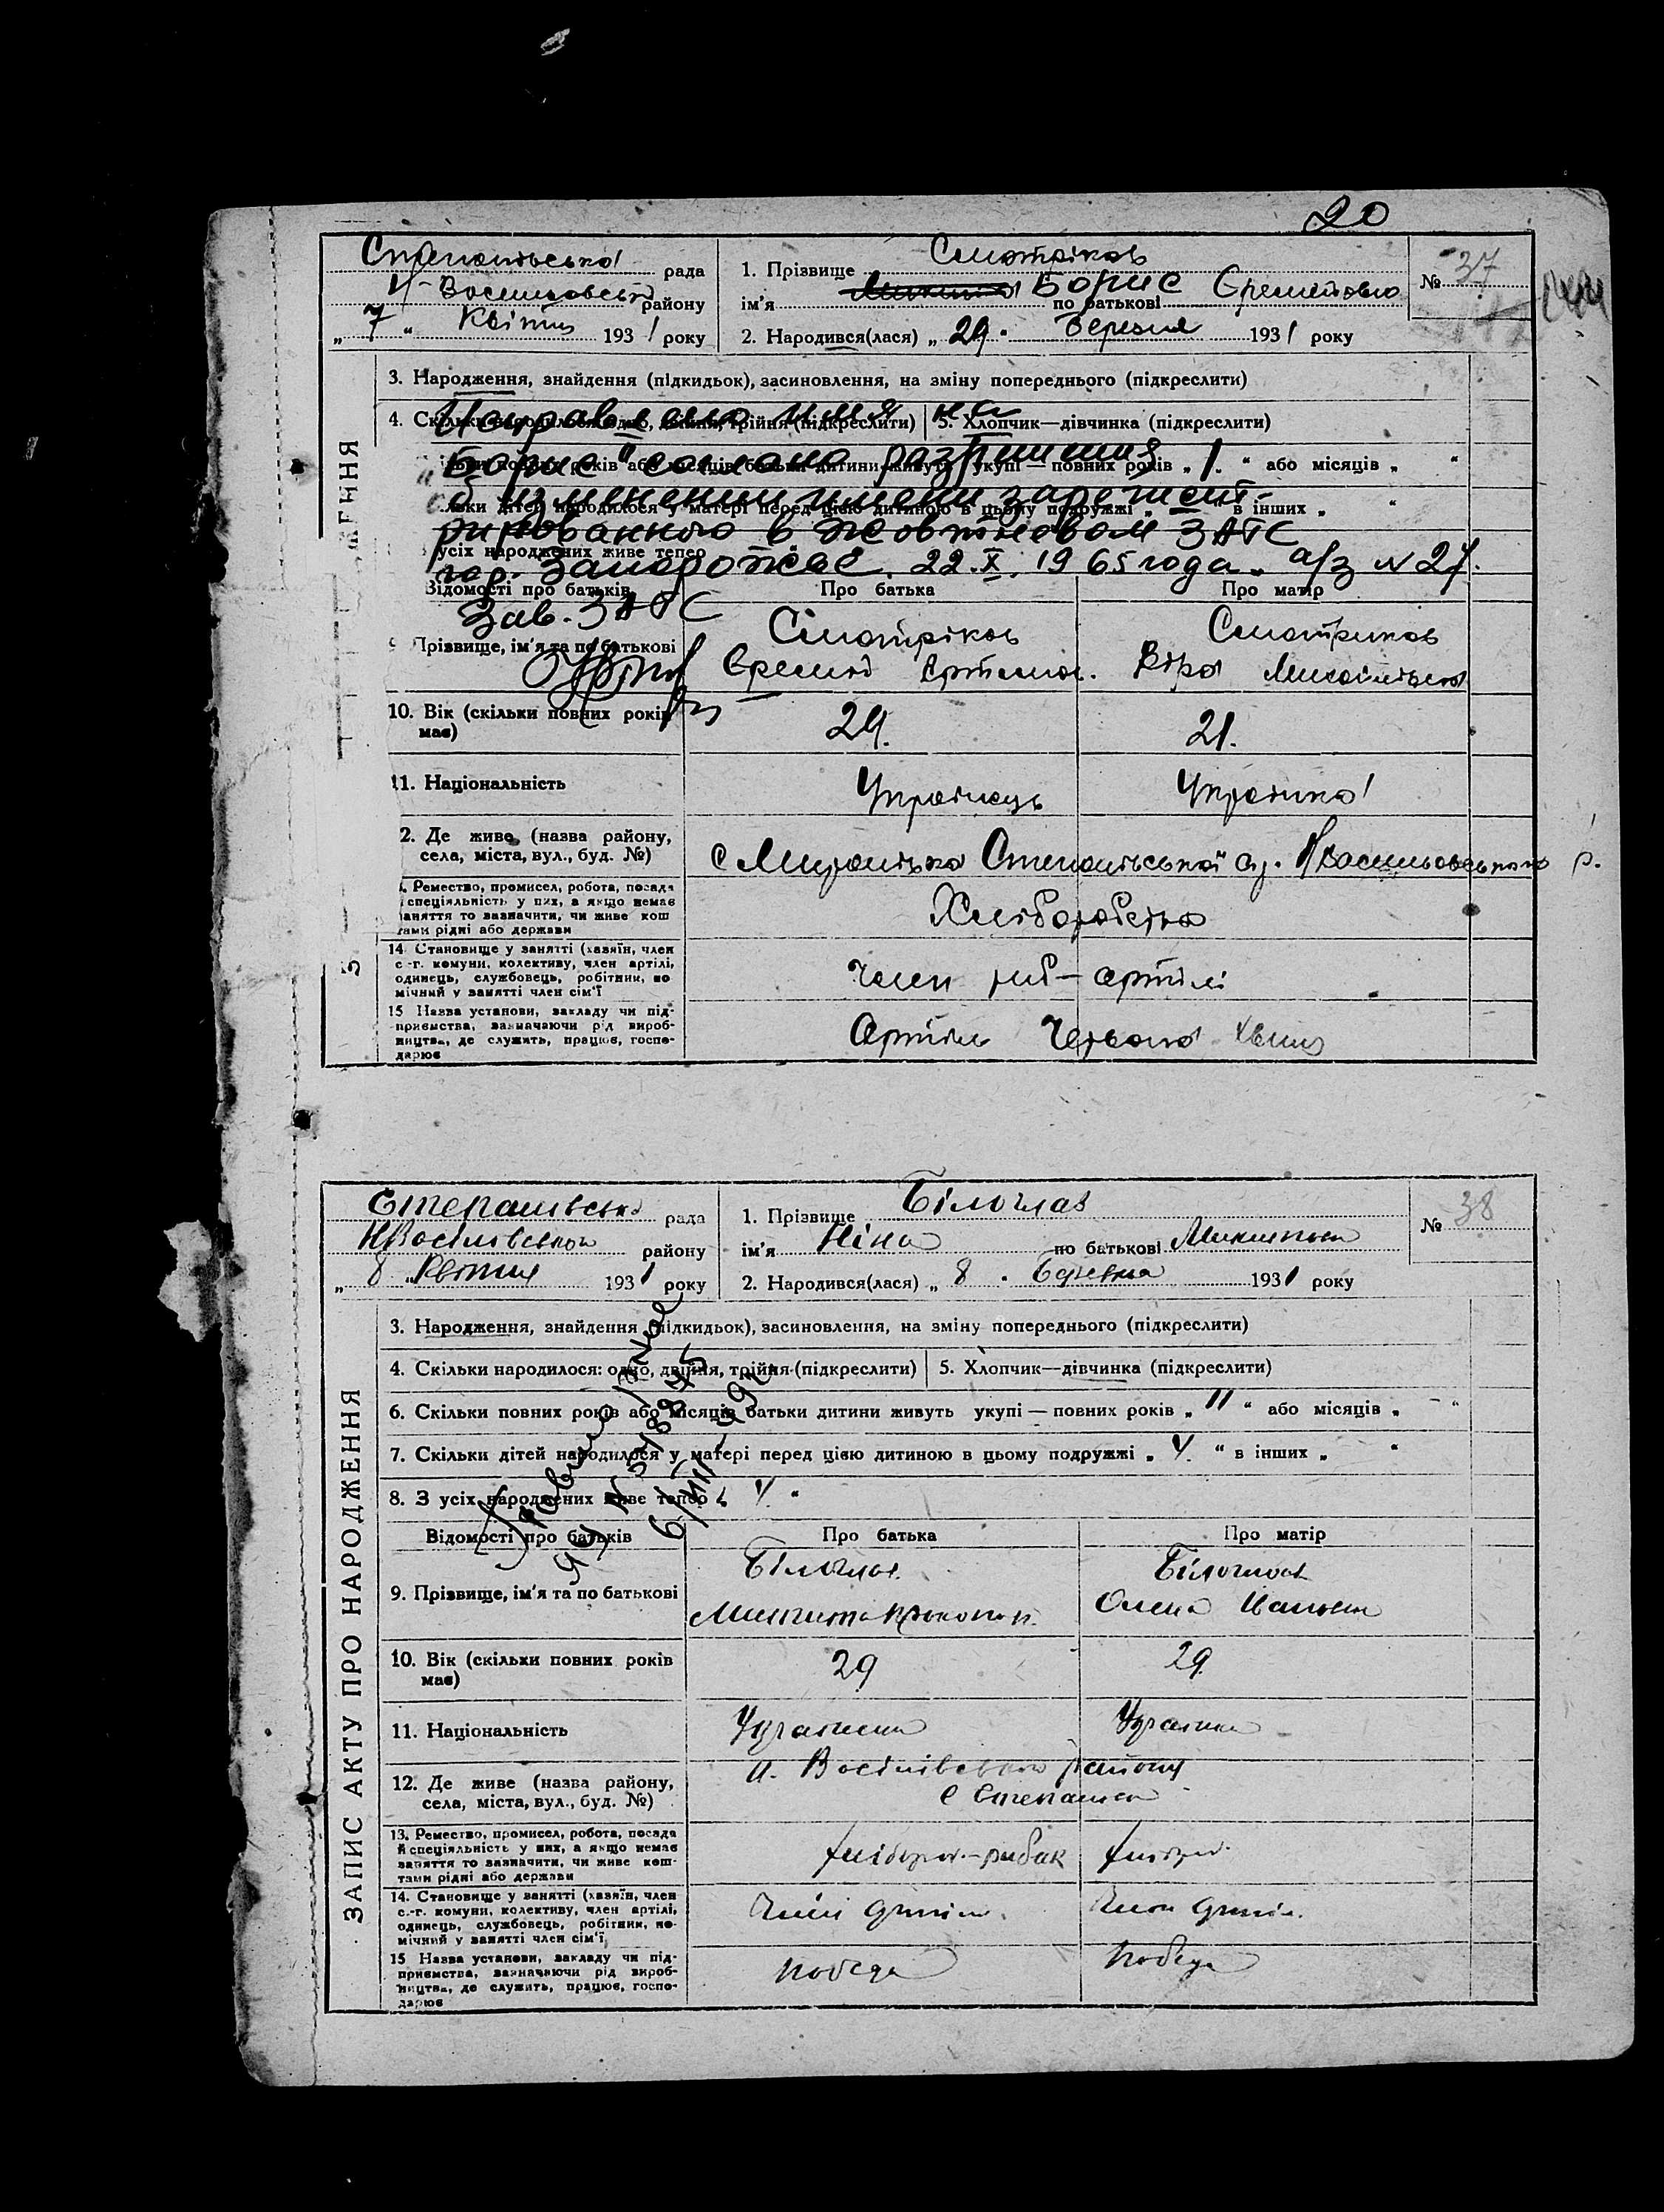 20
Степанівська рада
Н-Василовськ району
„ 7 “ Квітня 1931 року
1. Прізвище Смотріков
ім'я Борис по батькові Еремейович
2. Народився(лася) „ 29 “ Березня 1931 року
№ 37
3. Народження, знайдення (підкидьок), засиновлення, на зміну попереднього (підкреслити)
4. Скільки народилося: одно, двійня, трійня (підкреслити) 5. Хлопчик—дівчинка (підкреслити)
Исправлено имя на
повних років або місяців батьки дитини живуть укупі — повних років „ 1. “ або місяців „ “
„Борис“ согласно разрешения
льки дітей народилося у матері перед цією дитиною в цьому подружжі „ — “ в інших „ “
об изменении имени зарегист-
рированного в Жовтневом ЗАГС
усіх народжених живе тепер
гор. Запорожье. 22.X.1965 года. а/з N 27.
Відомості про батьків Про батька Про матір
Зав. ЗАГС
Прізвище, ім'я та по батькові
Смотріков Смотриков
Еремей Артемов. Віра Михайлівна
10. Вік (скільки повних років має) 29. 21.
11. Національність Українець Українка
2. Де живе (назва району, села, міста, вул., буд. №)
с Степанівської с/р. Н Васильовського р.
Ремество, промисел, робота, посада
спеціяльність у них, а якщо немає
заняття то вазначити, чи живе кош
тами рідні або держави
Хліборобство
14. Становище у занятті (хазяїн, член
с.-г. комуни, колективу, член артілі,
одинець, службовець, робітник, по
мічний у занятті член сім'ї
член риб-артілі
15 Назва установи, закладу чи під-
приємства, вазначаючи рід вироб-
ництва, де служить, працює, госпо-
дарює
Артіль Червона Хвиля
ЗАПИС АКТУ ПРО НАРОДЖЕННЯ
Степанівська рада
Н Василівського району
„ 8 “ Квітня 1931 року
1. Прізвище Білоглаз
ім'я Ніна по батькові Микитовна
2. Народився(лася) „ 8 “ Березня 1931 року
№ 38
3. Народження, знайдення (підкидьок), засиновлення, на зміну попереднього (підкреслити)
4. Скільки народилося: одно, двійня, трійня (підкреслити) 5. Хлопчик—дівчинка (підкреслити)
6. Скільки повних років або місяців батьки дитини живуть укупі — повних років „ 11 “ або місяців „ - “
7. Скільки дітей народилося у матері перед цією дитиною в цьому подружжі „ 4. “ в інших „ “
8. З усіх народжених живе тепер „ 4 “
Відомості про батьків Про батька Про матір
9. Прізвище, ім'я та по батькові
Білоглаз Білоглаз
Микита Прокопов. Олена Івановна
10. Вік (скільки повних років має) 29 29
11. Національність Українець Українка
12. Де живе (назва району, села, міста, вул., буд. №)
Н. Василівського району
с Степанівка
13. Ремество, промисел, робота, посада
й спеціяльність у них, а якщо немає
заняття то вазначити, чи живе кош-
тами рідні або держави
хлібороб-рибак хлібороб
14. Становище у занятті (хазяїн, член
с.-г. комуни, колективу, член артілі,
одинець, службовець, робітник, по-
мічний у занятті член сім'ї
Член Артіли. Член Артіли.
15 Назва установи, закладу чи під-
приємства, вазначаючи рід вироб-
ництва, де служить, працює, госпо-
дарює
Победа Победа